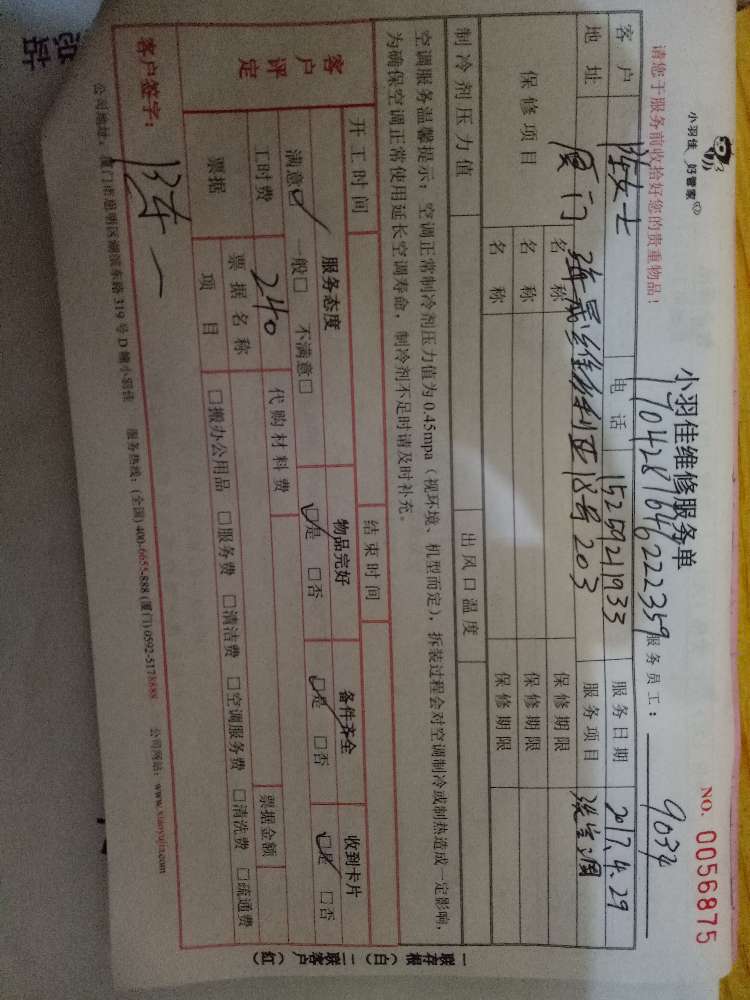 小羽佳 好管家
小羽佳维修服务单
NO. 0056875
170428164622359
请您于服务前收拾好您的贵重物品！
服务员工： 9034
客户 陈女士 电话 15259211933 服务日期 2017.4.29
地址 厦门 维多利亚18号203 服务项目 洗空调
保修项目 名称 保修期限
名称 保修期限
名称 保修期限
制冷剂压力值 出风口温度
空调服务温馨提示：空调正常制冷剂压力值为0.45mpa（视环境、机型而定），拆装过程会对空调制冷或制热造成一定影响，
为确保空调正常使用延长空调寿命，制冷剂不足时请及时补充。
开工时间 结束时间
客户评定 服务态度 物品完好 备件齐全 收到卡片
满意☑ 一般□ 不满意□ ☑是 □否 ☑是 □否 ☑是 □否
工时费 240 代购材料费
票据 票据名称 票据金额
项目 □搬办公用品 □服务费 □清洁费 □空调服务费 □清洗费 □疏通费
客户签字： 陈
公司地址：厦门市思明区湖滨东路319号D幢小羽佳 服务热线：(全国) 400-6655-888 (厦门) 0592-5178888 公司网站：www.xiaoyujia.com
一联存根（白） 二联客户（红）